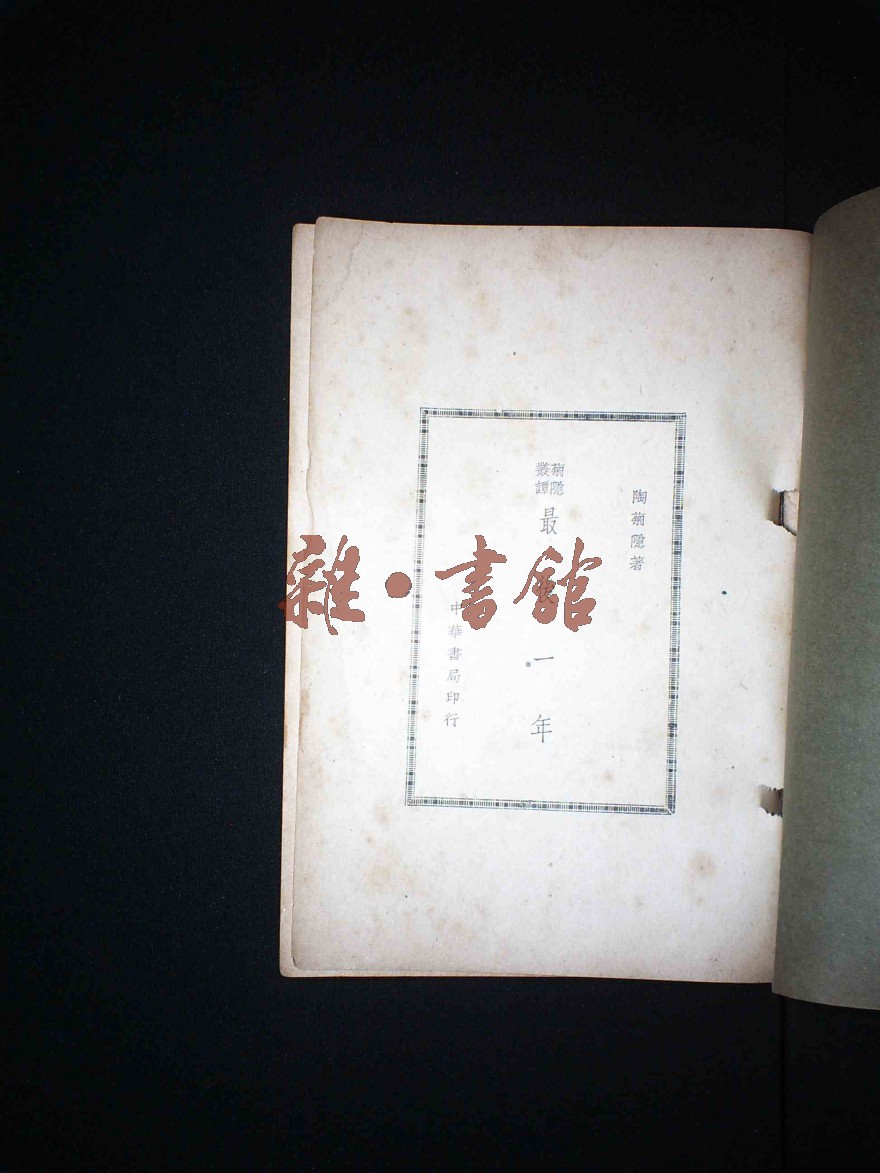 陶菊隱著
菊隱
叢譚
最 一年
中華書局印行
雜·書館